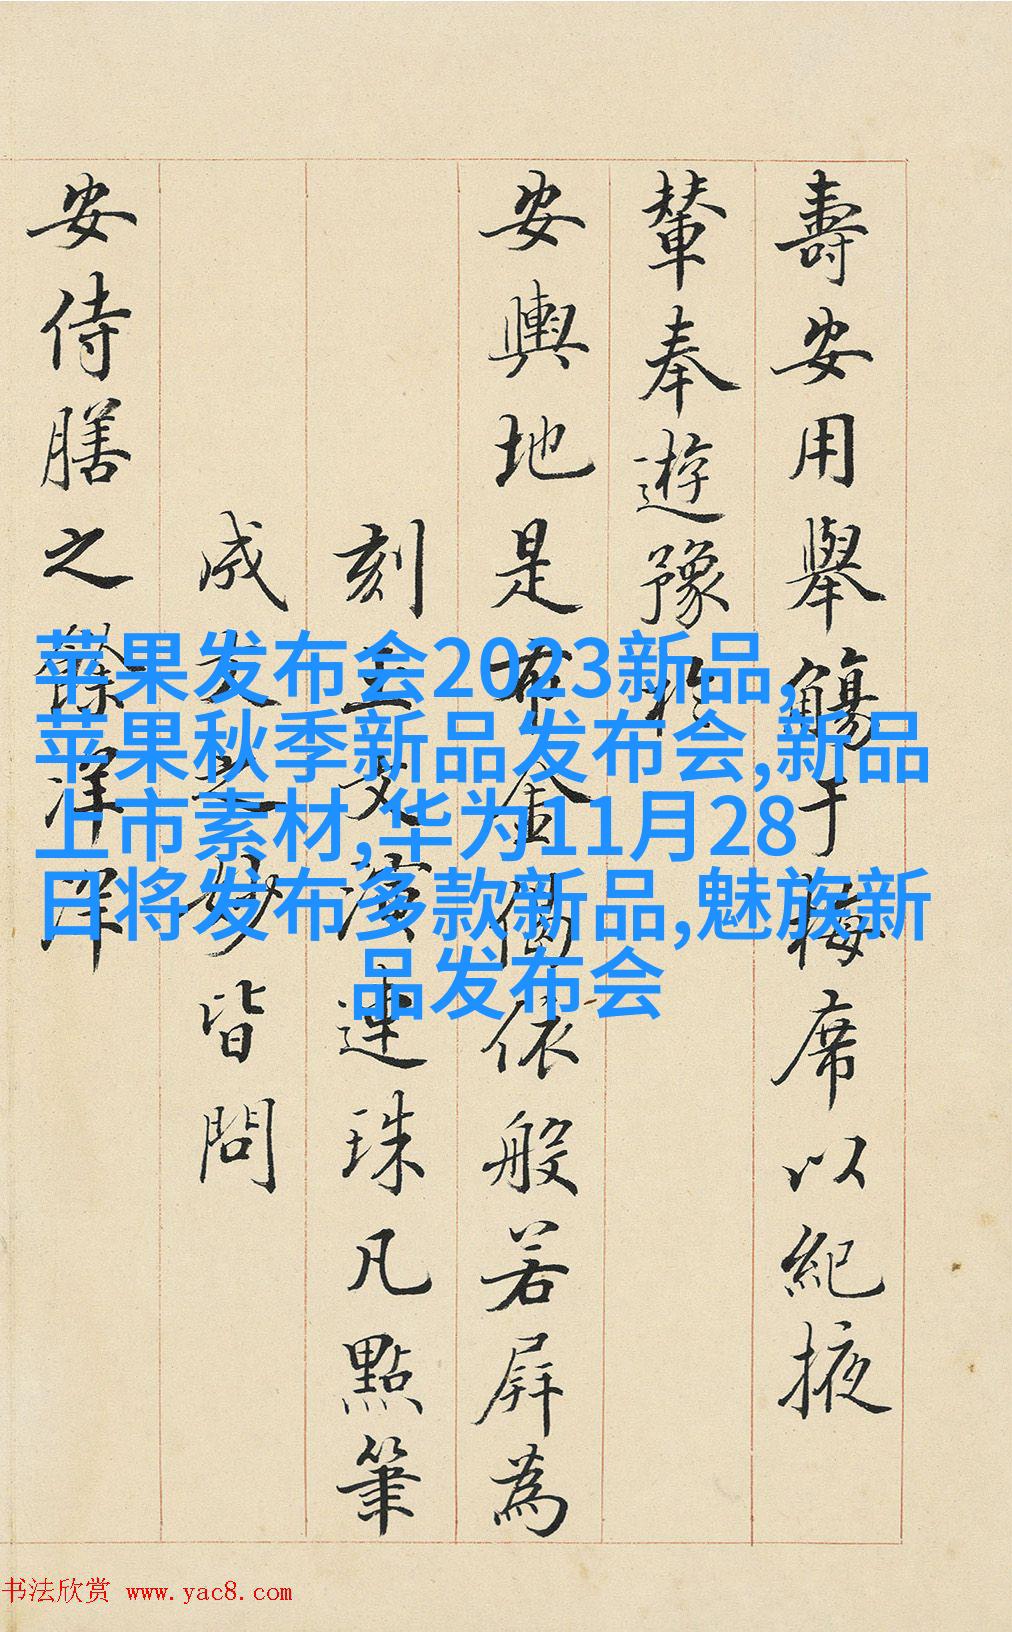 壽安用舉觴于梅席以紀掖
輦奉遊豫於
安輿地是布金偈依般若屏為
刻文演連珠凡點筆
妙皆問
安侍膳之餘洋洋
苹果发布会2023新品,
苹果秋季新品发布会,新品
上市素材,华为11月28
日将发布多款新品,魅族新
品发布会
书法欣赏 www.yac8.com